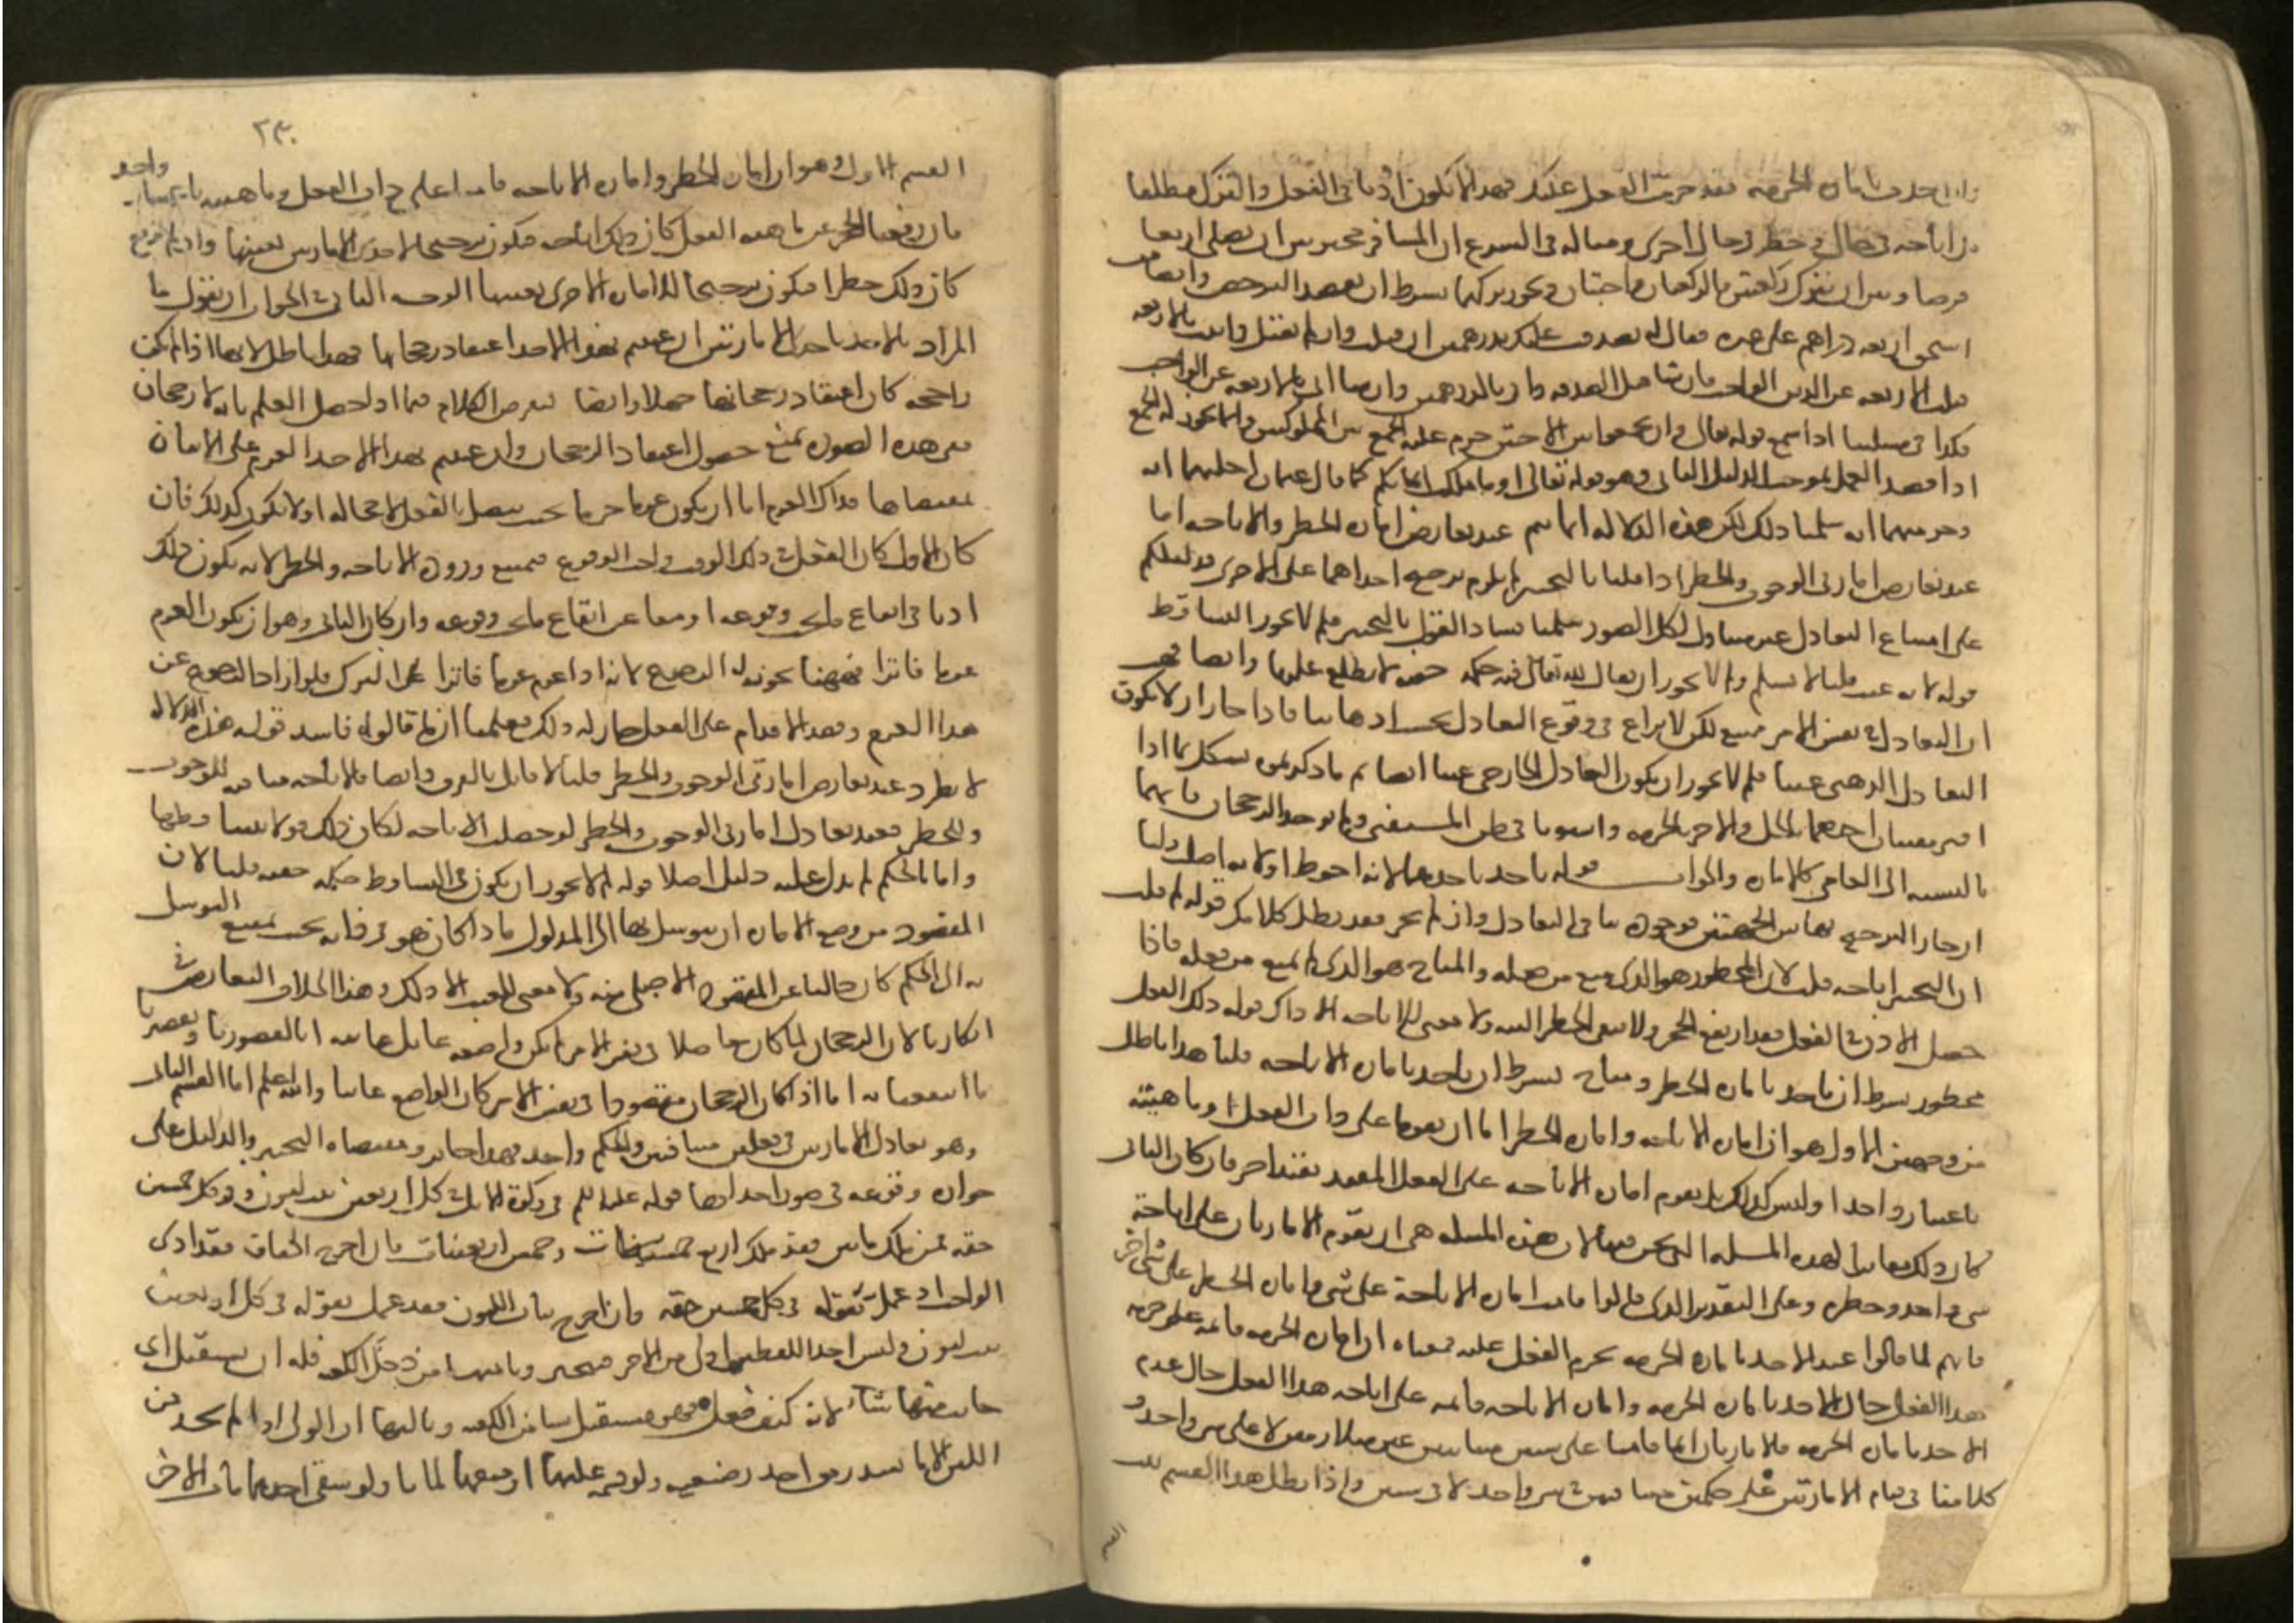 وان اخذت بامارة الحرمة فقد حرمت الفعل عليك فهذا لا يكون اذنا في الفعل والترك مطلقا
بل اباحة في حال وحظر في حال اخرى ومثاله في الشرع ان المسافر مخير بين ان يصلي اربعا
فرضا وبين ان يترك ركعتين فالركعتان واجبتان ويجوز تركهما بشرط ان يقصد الترخص وايضا من
استحق اربعة دراهم على غيره فقال له تصدقت عليك بدرهمين ان قبلت وان لم تقبل واتيت بالاربعة
قبلت الاربعة عن الدين الواجب فان شا قبل الصدقة واتى بالدرهمين وان شا اتى بالاربعة عن الواجب
فكذا في مسئلتنا اذا سمع قوله تعالى وان تجمعوا بين الاختين حرم عليه الجمع بين المملوكتين وانما يجوز له الجمع
اذا قصد العمل بموجب الدليل الثاني وهو قوله تعالى او ما ملكت ايمانكم كما قال عثمان احلتهما اية
وحرمتهما اية سلمنا ذلك لكن هذه الدلالة انما تتم عند تعارض امارة الحظر والاباحة اما
عند تعارض امارتي الوجوب والحظر اذا قلنا بالتخيير لم يلزم ترجيح احداهما على الاخرى فدليلكم
على امتناع التعادل غير متناول لكل الصور سلمنا فساد القول بالتخيير فلم لا يجوز التساقط
قوله لانه عبث قلنا لا نسلم ولم لا يجوز ان يقال لله تعالى فيه حكمة خفية لا نطلع عليها وايضا فهب
ان التعادل في نفس الامر ممتنع لكن لا نزاع في وقوع التعادل بحسب اذهاننا فاذا جاز ان لا يكون
التعادل الذهني عبثا فلم لا يجوز ان يكون التعادل الخارجي عبثا ايضا ثم ما ذكرتموه يشكل بما اذا
افتى مفتيان احدهما بالحل والاخر بالحرمة واستويا في ظن المستفتي ولم يوجد الرجحان فانهما
بالنسبة الى العامي كالامارة والجواب قوله ناخذ باحدهما لانه احوط او لانه اصل قلنا
ان جاز الترجيح بهاتين الجهتين فوجوده ينافي التعادل وان لم يجز فقد بطل كلامكم قوله لم قلت
ان التخيير اباحة قلنا لان المحظور هو الذي منع من فعله والمباح هو الذي لم يمنع من فعله فاذا
حصل الاذن في الفعل فقد ارتفع الحجر ولا يبقى الحظر البتة ولا معنى للاباحة الا ذاك قوله ذلك الفعل
محظور بشرط ان ياخذ بامارة الحظر ومباح بشرط ان ياخذ بامارة الاباحة قلنا هذا باطل
من وجهين الاول هو ان امارة الاباحة وامارة الحظر اما ان يقوما على ذات الفعل وماهيته
باعتبار واحد او ليس كذلك بل يقوم امارة الاباحة على الفعل المقيد بقيد اخر فان كان الثاني
كان ذلك مغايرا لهذه المسئلة التي نحن فيها لان هذه المسئلة هي ان تقوم الامارتان على اباحة
شي واحد وحظره وعلى التقدير الذي قالوا قامت امارة الاباحة على شي وامارة الحظر على شي اخر
فانهم لما قالوا عند الاخذ بامارة الحرمة يحرم الفعل عليه فمعناه ان امارة الحرمة قائمة على حرمة
هذا الفعل حال الاخذ بامارة الحرمة وامارة الاباحة قائمة على اباحة هذا الفعل حال عدم
الاخذ بامارة الحرمة فالامارتان انما قامتا على شيئين متباينين غير متلازمين لا على شي واحد و
كلامنا في قيام الامارتين على حكمين متنافيين في شي واحد لا في شيئين واذا بطل هذا القسم ثبت
القسم
٢٣٠
القسم الاول وهو ان امارة الحظر وامارة الاباحة قامتا على ذات الفعل وماهيته باعتبار واحد
فان رفعنا الحجر عن ماهية الفعل كان ذلك اباحة فيكون ترجيحا لاحدى الامارتين بعينها وان لم نرفع
كان ذلك حظرا فيكون ترجيحا للامارة الاخرى بعينها الوجه الثاني في الجواب ان نقول ما
المراد بالاخذ باحدى الامارتين ان عنيتم بهذا الاخذ اعتقاد رجحانها فهذا باطل لانها اذا لم تكن
راجحة كان اعتقاد رجحانها جهلا وايضا نفرض الكلام فيما اذا حصل العلم بانه لا رجحان
ففي هذه الصورة يمتنع حصول اعتقاد الرجحان وان عنيتم بهذا الاخذ العزم على الاتيان
بمقتضاها فذاك العزم اما ان يكون عزما جزما بحيث يتصل بالفعل لا محالة او لا يكون كذلك فان
كان الاول كان الفعل في ذلك الوقت واجب الوقوع فيمتنع ورود الاباحة والحظر لانه يكون ذلك
اذنا في ايقاع ما يجب وقوعه او منعا عن ايقاع ما يجب وقوعه وان كان الثاني وهو ان يكون العزم
عزما فاترا فههنا يجوز له الرجوع لانه اذا عزم عزما فاترا على الترك فلو اراد الرجوع عن
هذا العزم وقصد الاقدام على الفعل جاز له ذلك فعلمنا ان ما قالوه فاسد قوله هذه الدلالة
لا تطرد عند تعارض امارتي الوجوب والحظر قلنا لا قائل بالفرق وايضا فالاباحة منافية للوجوب
وللحظر فعند تعادل امارتي الوجوب والحظر لو حصلت الاباحة لكان ذلك قولا بتساقطهما
واثباتا لحكم لم يدل عليه دليل اصلا قوله لم لا يجوز ان يكون في التساقط حكمة خفية قلنا لان
المقصود من وضع الامارة ان يتوسل بها الى المدلول فاذا كان هو في ذاته بحيث يمتنع التوسل
به الى الحكم كان خاليا عن المقصود الاصلي منه ولا معنى للعبث الا ذلك وهذا بخلاف التعارض في
افكارنا لان الرجحان لما كان حاصلا في نفس الامر لم يكن واضعه عابثا بل غايته انا لقصورنا وتقصيرنا
ما انتفعنا به اما اذا كان الرجحان مفقودا في نفس الامر كان الواضع عابثا والله اعلم اما القسم الثاني
وهو تعادل الامارتين في فعلين متنافيين والحكم واحد فهذا جائز ومقتضاه التخيير والدليل على
جوازه وقوعه في صور احداها قوله عليه السلم في زكوة الابل في كل اربعين بنت لبون وفي كل خمسين
حقة فمن ملك مائتين فقد ملك اربع خمسينات وخمس اربعينات فان اخرج الحقاق فقد ادى
الواجب اذ عمل بقوله في كل خمسين حقة وان اخرج بنات اللبون فقد عمل بقوله في كل اربعين
بنت لبون وليس احد اللفظين اولى من الاخر فيتخير وثانيها من دخل الكعبة فله ان يستقبل اي
جانب منها شاء لانه كيف فعل فهو مستقبل شيا من الكعبة وثالثها ان الولي اذا لم يجد من
اللبن الا ما يسد رمق احد رضيعيه ولو قسمه عليهما او منعهما لماتا ولو سقى احدهما مات الاخر